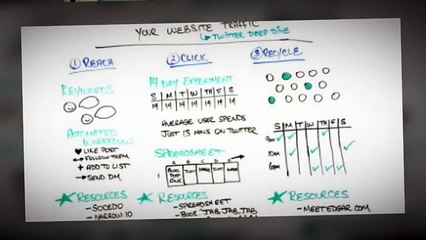 YOUR WEBSITE TRAFFIC
TWITTER DEEP DIVE
① REACH
KEYWORDS
AUTOMATED WORKFLOW
LIKE POST
FOLLOW THEM
+ ADD TO LIST
SEND DM
RESOURCES
- SOCEDO
- NARROW.IO
② CLICK
14 DAY EXPERIMENT
S M T W TH F S
14 14 14 14 14 14 14
AVERAGE USER SPENDS
JUST 13 MINS ON TWITTER
SPREADSHEET
A B C D
1
BLOG POST
RESOURCES
- SPREADSHEET
- BOOK JAB, JAB, JAB
③ RECYCLE
S M T W T F S
9am
10am
6pm
RESOURCES
- MEETEDGAR.COM